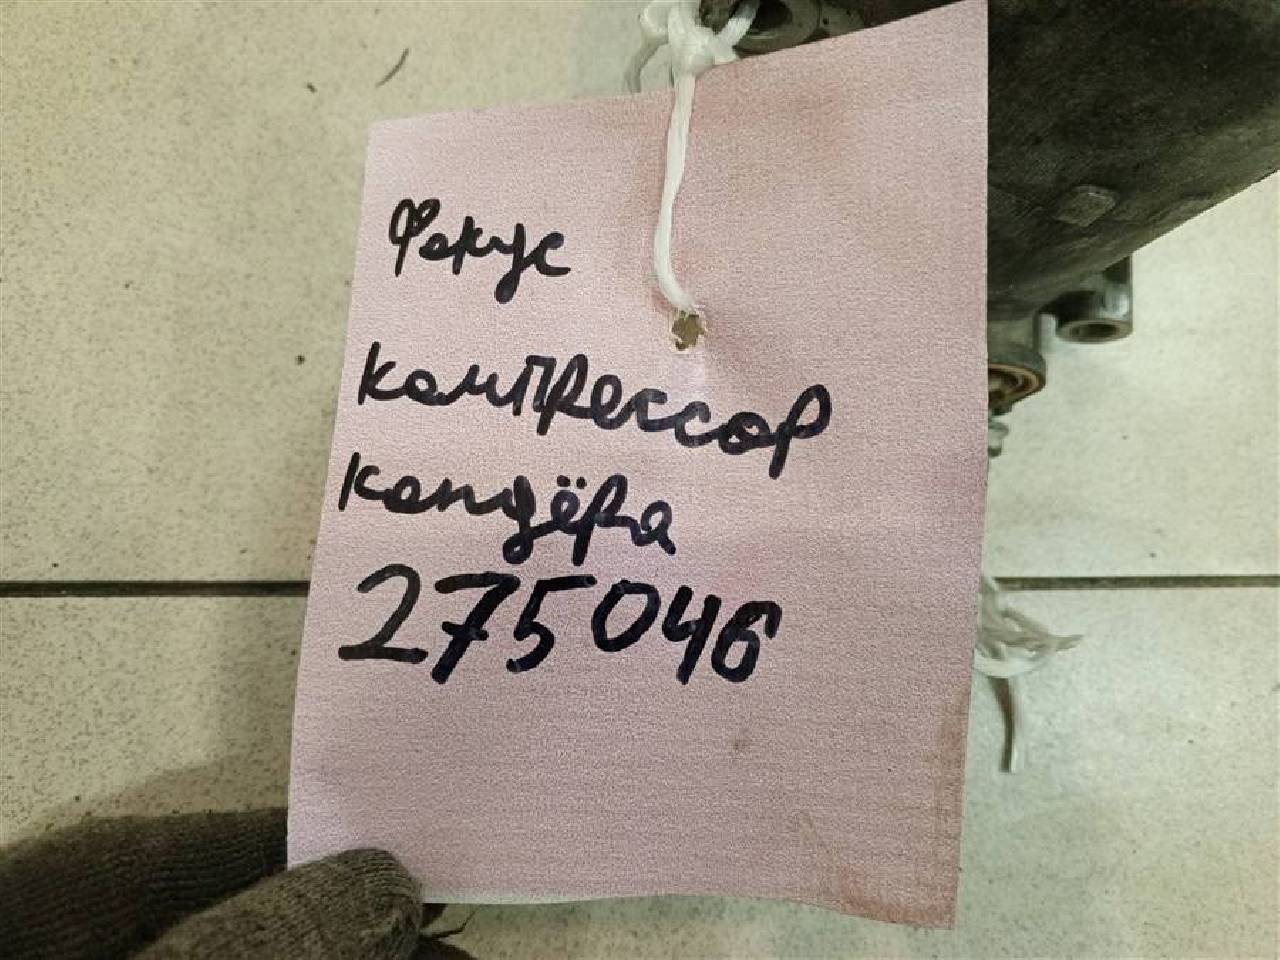 Фокус
компрессор
кондёра
275046